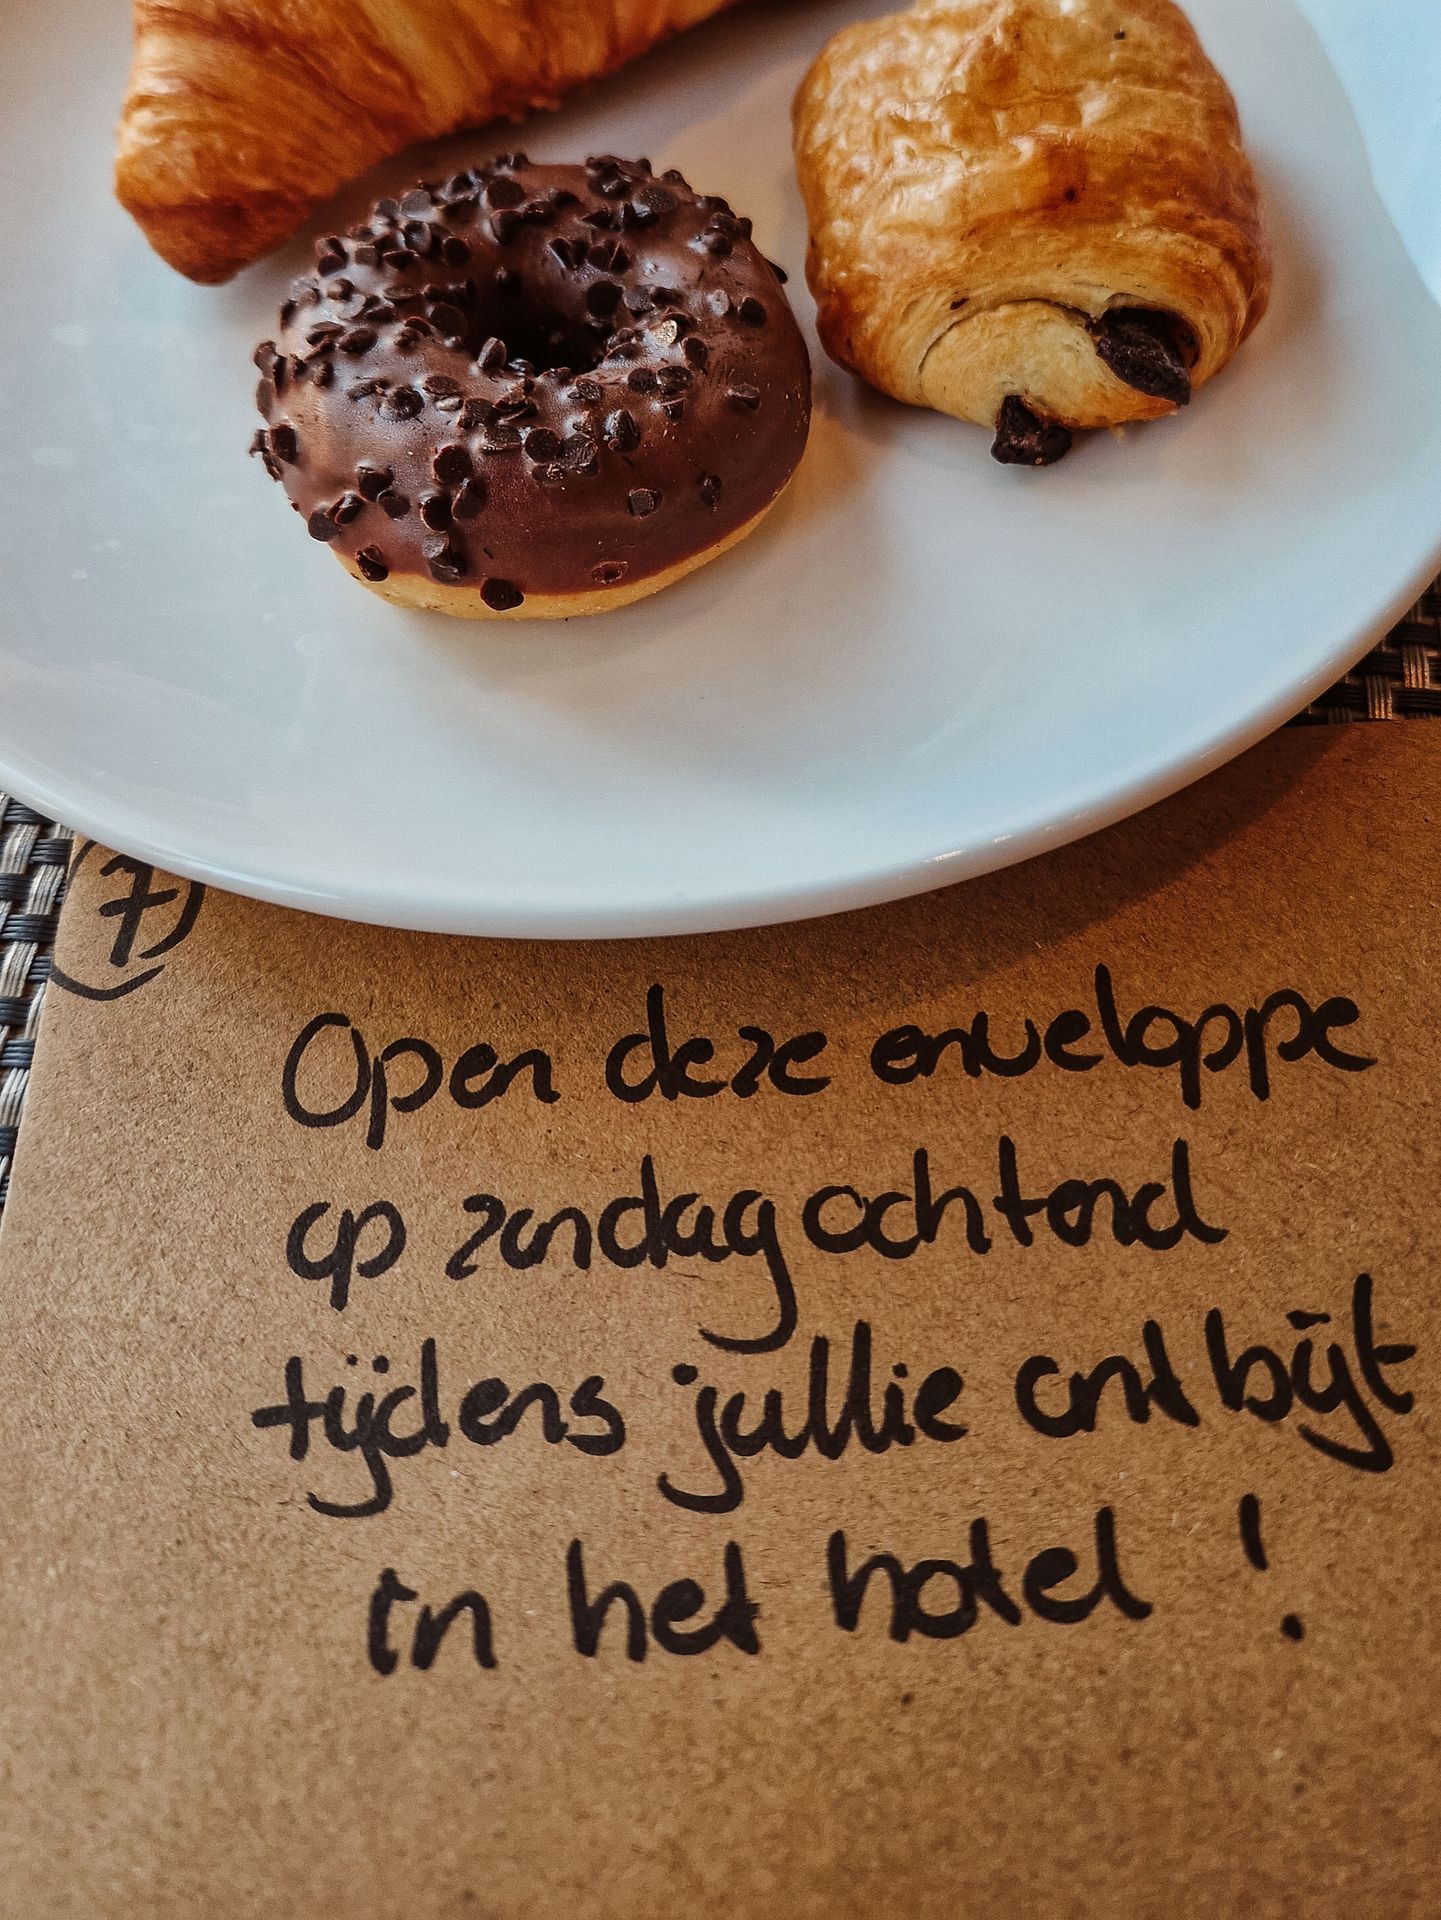 7
Open deze enveloppe
op zondagochtend
tijdens jullie ontbijt
in het hotel !